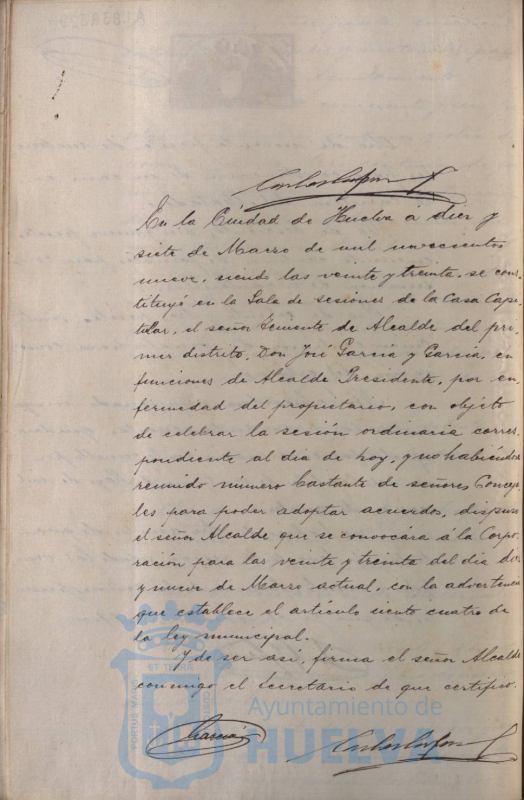 En la Ciudad de Huelva á diez y
siete de Marzo de mil novecientos
nueve, siendo las veinte y treinta, se cons-
tituyó en la Sala de sesiones de la Casa Capi-
tular, el señor Teniente de Alcalde del pri-
mer distrito, Don José García y García, en
funciones de Alcalde Presidente, por en-
fermedad del propietario, con objeto
de celebrar la sesión ordinaria corres-
pondiente al dia de hoy, y no habiéndose
reunido número bastante de señores Conceja-
les para poder adoptar acuerdos, dispuso
el señor Alcalde que se convocára á la Corpo-
ración para las veinte y treinta del dia diez
y nueve de Marzo actual, con la advertencia
que establece el artículo ciento cuatro de
la ley municipal.
Y de ser así, firma el señor Alcalde
conmigo el Secretario de que certifico.
García
Ayuntamiento de
HUELVA
PORTUS MARIS
ET TERRÆ